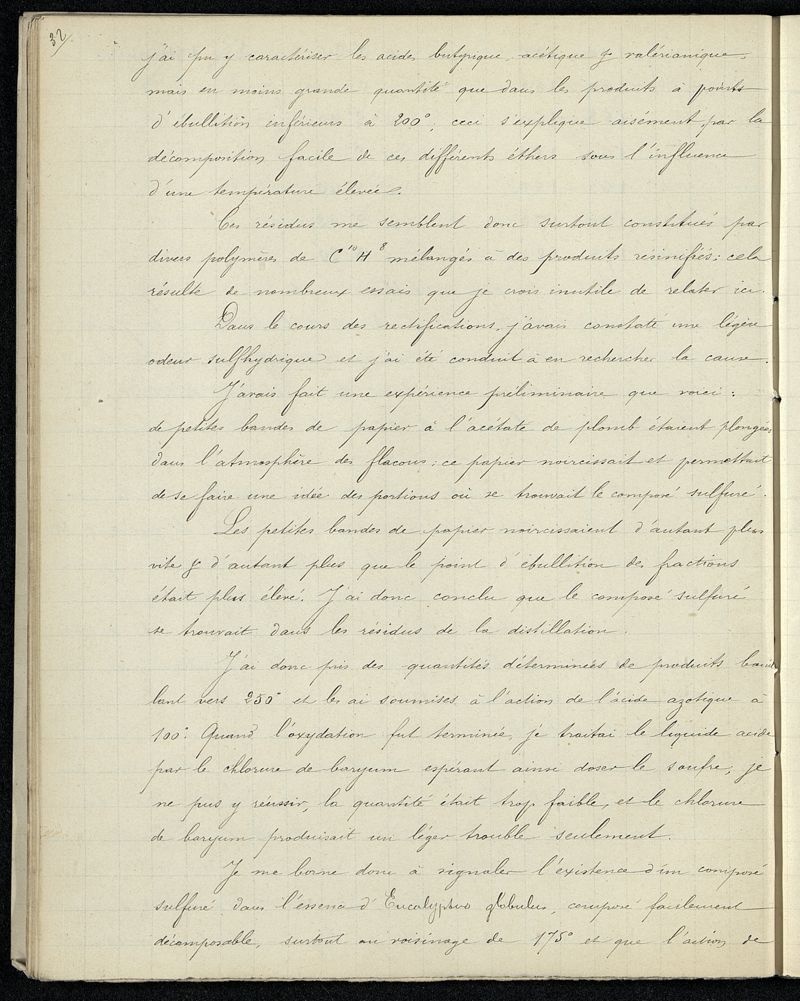 32/.
j'ai pu y caractériser les acides butyrique, acétique & valérianique,
mais en moins grande quantité que dans les produits à points
d'ébullition inférieurs à 200°; ceci s'explique aisément par la
décomposition facile de ces différents éthers sous l'influence
d'une température élevée.
Ces résidus me semblent donc surtout constitués par
divers polymères de C¹⁰H⁸ mélangés à des produits résinifiés; cela
résulte de nombreux essais que je crois inutile de relater ici.
Dans le cours des rectifications, j'avais constaté une légère
odeur sulfhydrique et j'ai été conduit à en rechercher la cause.
J'avais fait une expérience préliminaire que voici :
de petites bandes de papier à l'acétate de plomb étaient plongées
dans l'atmosphère des flacons; ce papier noircissait et permettait
de se faire une idée des portions où se trouvait le composé sulfuré.
Les petites bandes de papier noircissaient d'autant plus
vite & d'autant plus que le point d'ébullition des fractions
était plus élevé. J'ai donc conclu que le composé sulfuré
se trouvait dans les résidus de la distillation.
J'ai donc pris des quantités déterminées de produits bouil
lant vers 250° et les ai soumises à l'action de l'acide azotique à
100°. Quand l'oxydation fut terminée, je traitai le liquide acide
par le chlorure de baryum espérant ainsi doser le soufre; je
ne pus y réussir, la quantité était trop faible, et le chlorure
de baryum produisait un léger trouble seulement.
Je me borne donc à signaler l'existence d'un composé
sulfuré dans l'essence d'Eucalyptus globulus, composé facilement
décomposable, surtout au voisinage de 175° et que l'action de